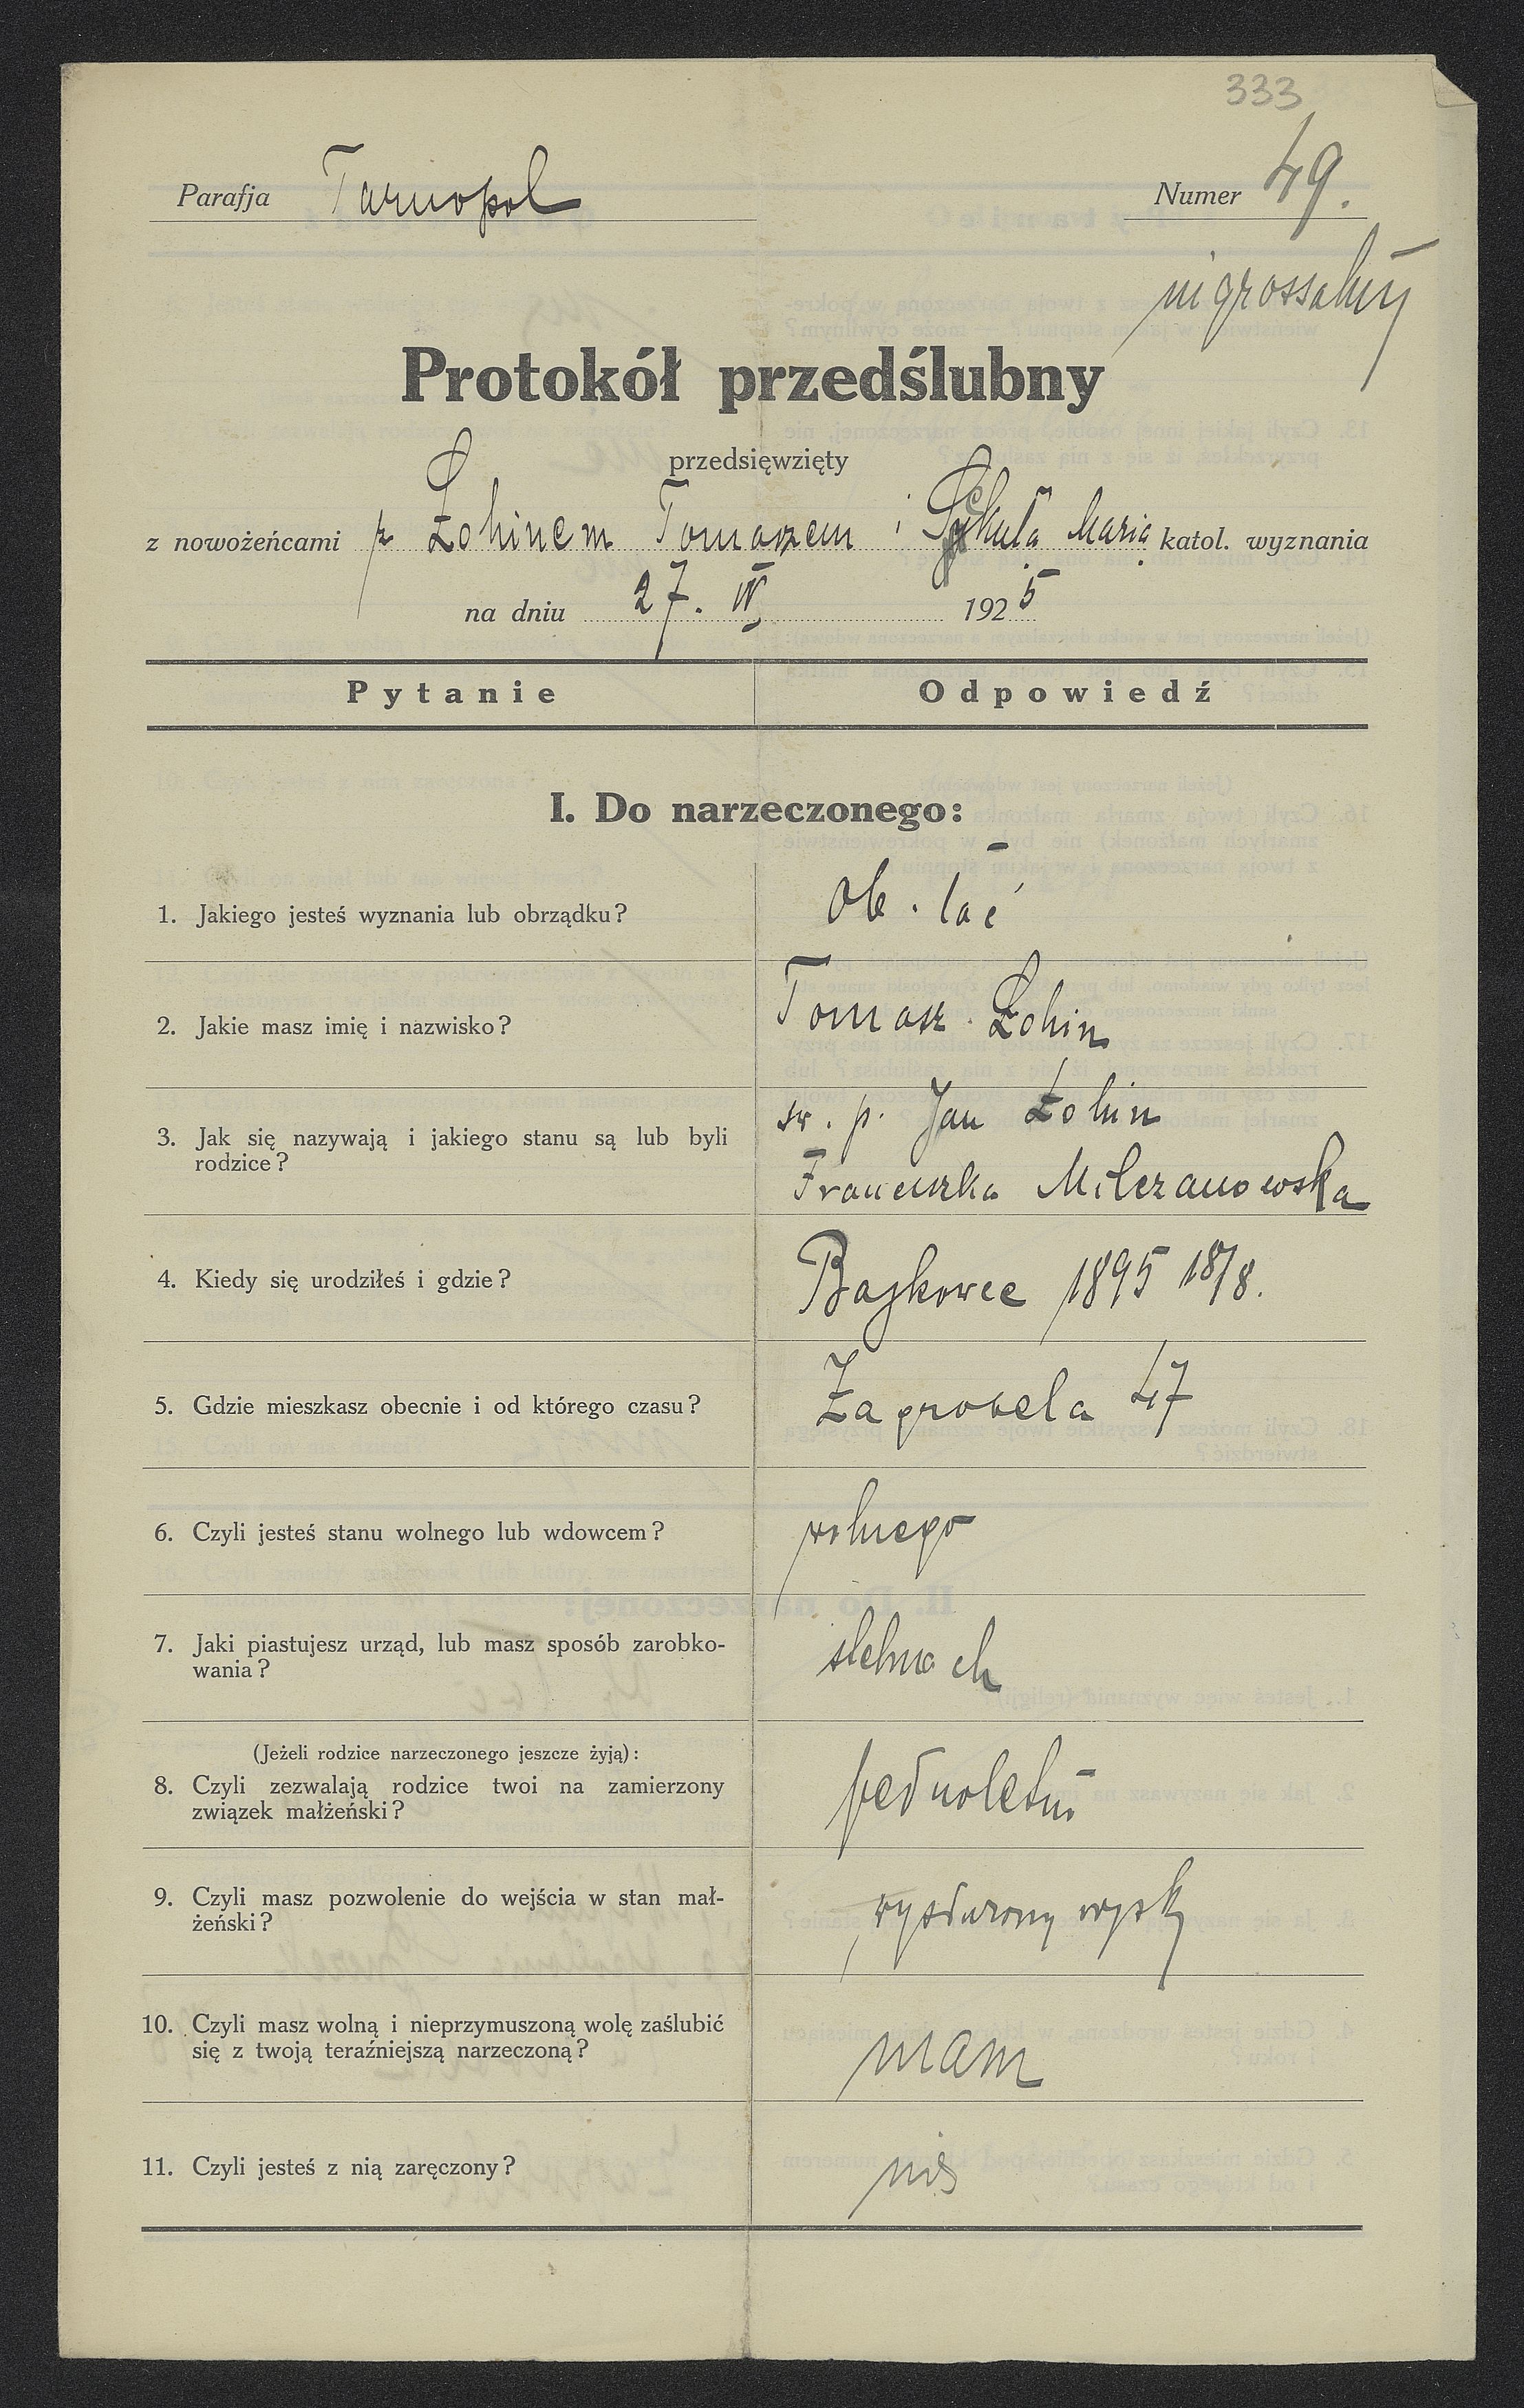 333
Parafja Tarnopol
Numer 49.
Protokół przedślubny
przedsięwzięty
z nowożeńcami p Łohinem Tomaszem i Maria katol. wyznania
na dniu 27. IV 1925
Pytanie Odpowiedź
I. Do narzeczonego:
1. Jakiego jesteś wyznania lub obrządku? ob. łać
2. Jakie masz imię i nazwisko? Tomasz Łohin
3. Jak się nazywają i jakiego stanu są lub byli
rodzice?
św. p. Jan Łohin
Franciszka Milczanowska
4. Kiedy się urodziłeś i gdzie? Bajkowce 1895 18/8.
5. Gdzie mieszkasz obecnie i od którego czasu? Zagrobela 47
6. Czyli jesteś stanu wolnego lub wdowcem? wolnego
7. Jaki piastujesz urząd, lub masz sposób zarobko-
wania?
(Jeżeli rodzice narzeczonego jeszcze żyją):
8. Czyli zezwalają rodzice twoi na zamierzony
związek małżeński?
9. Czyli masz pozwolenie do wejścia w stan mał-
żeński?
10. Czyli masz wolną i nieprzymuszoną wolę zaślubić
się z twoją teraźniejszą narzeczoną?
mam
11. Czyli jesteś z nią zaręczony? nie